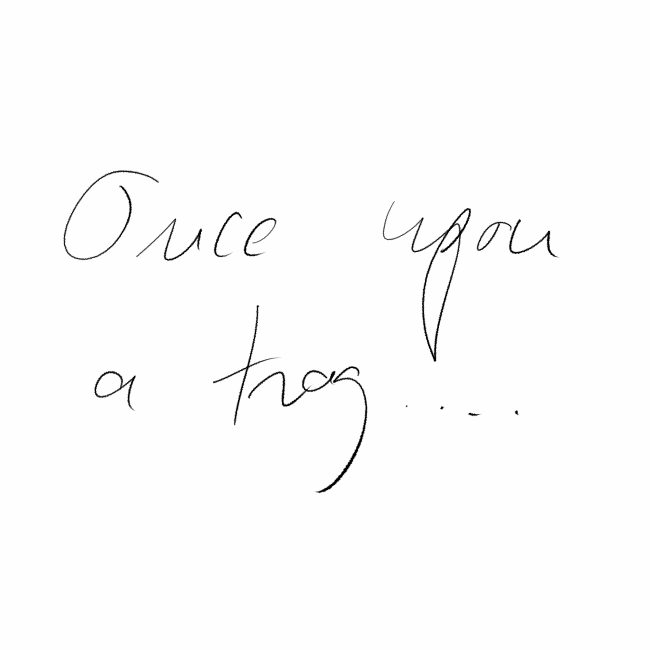 Once upon
a trag.....